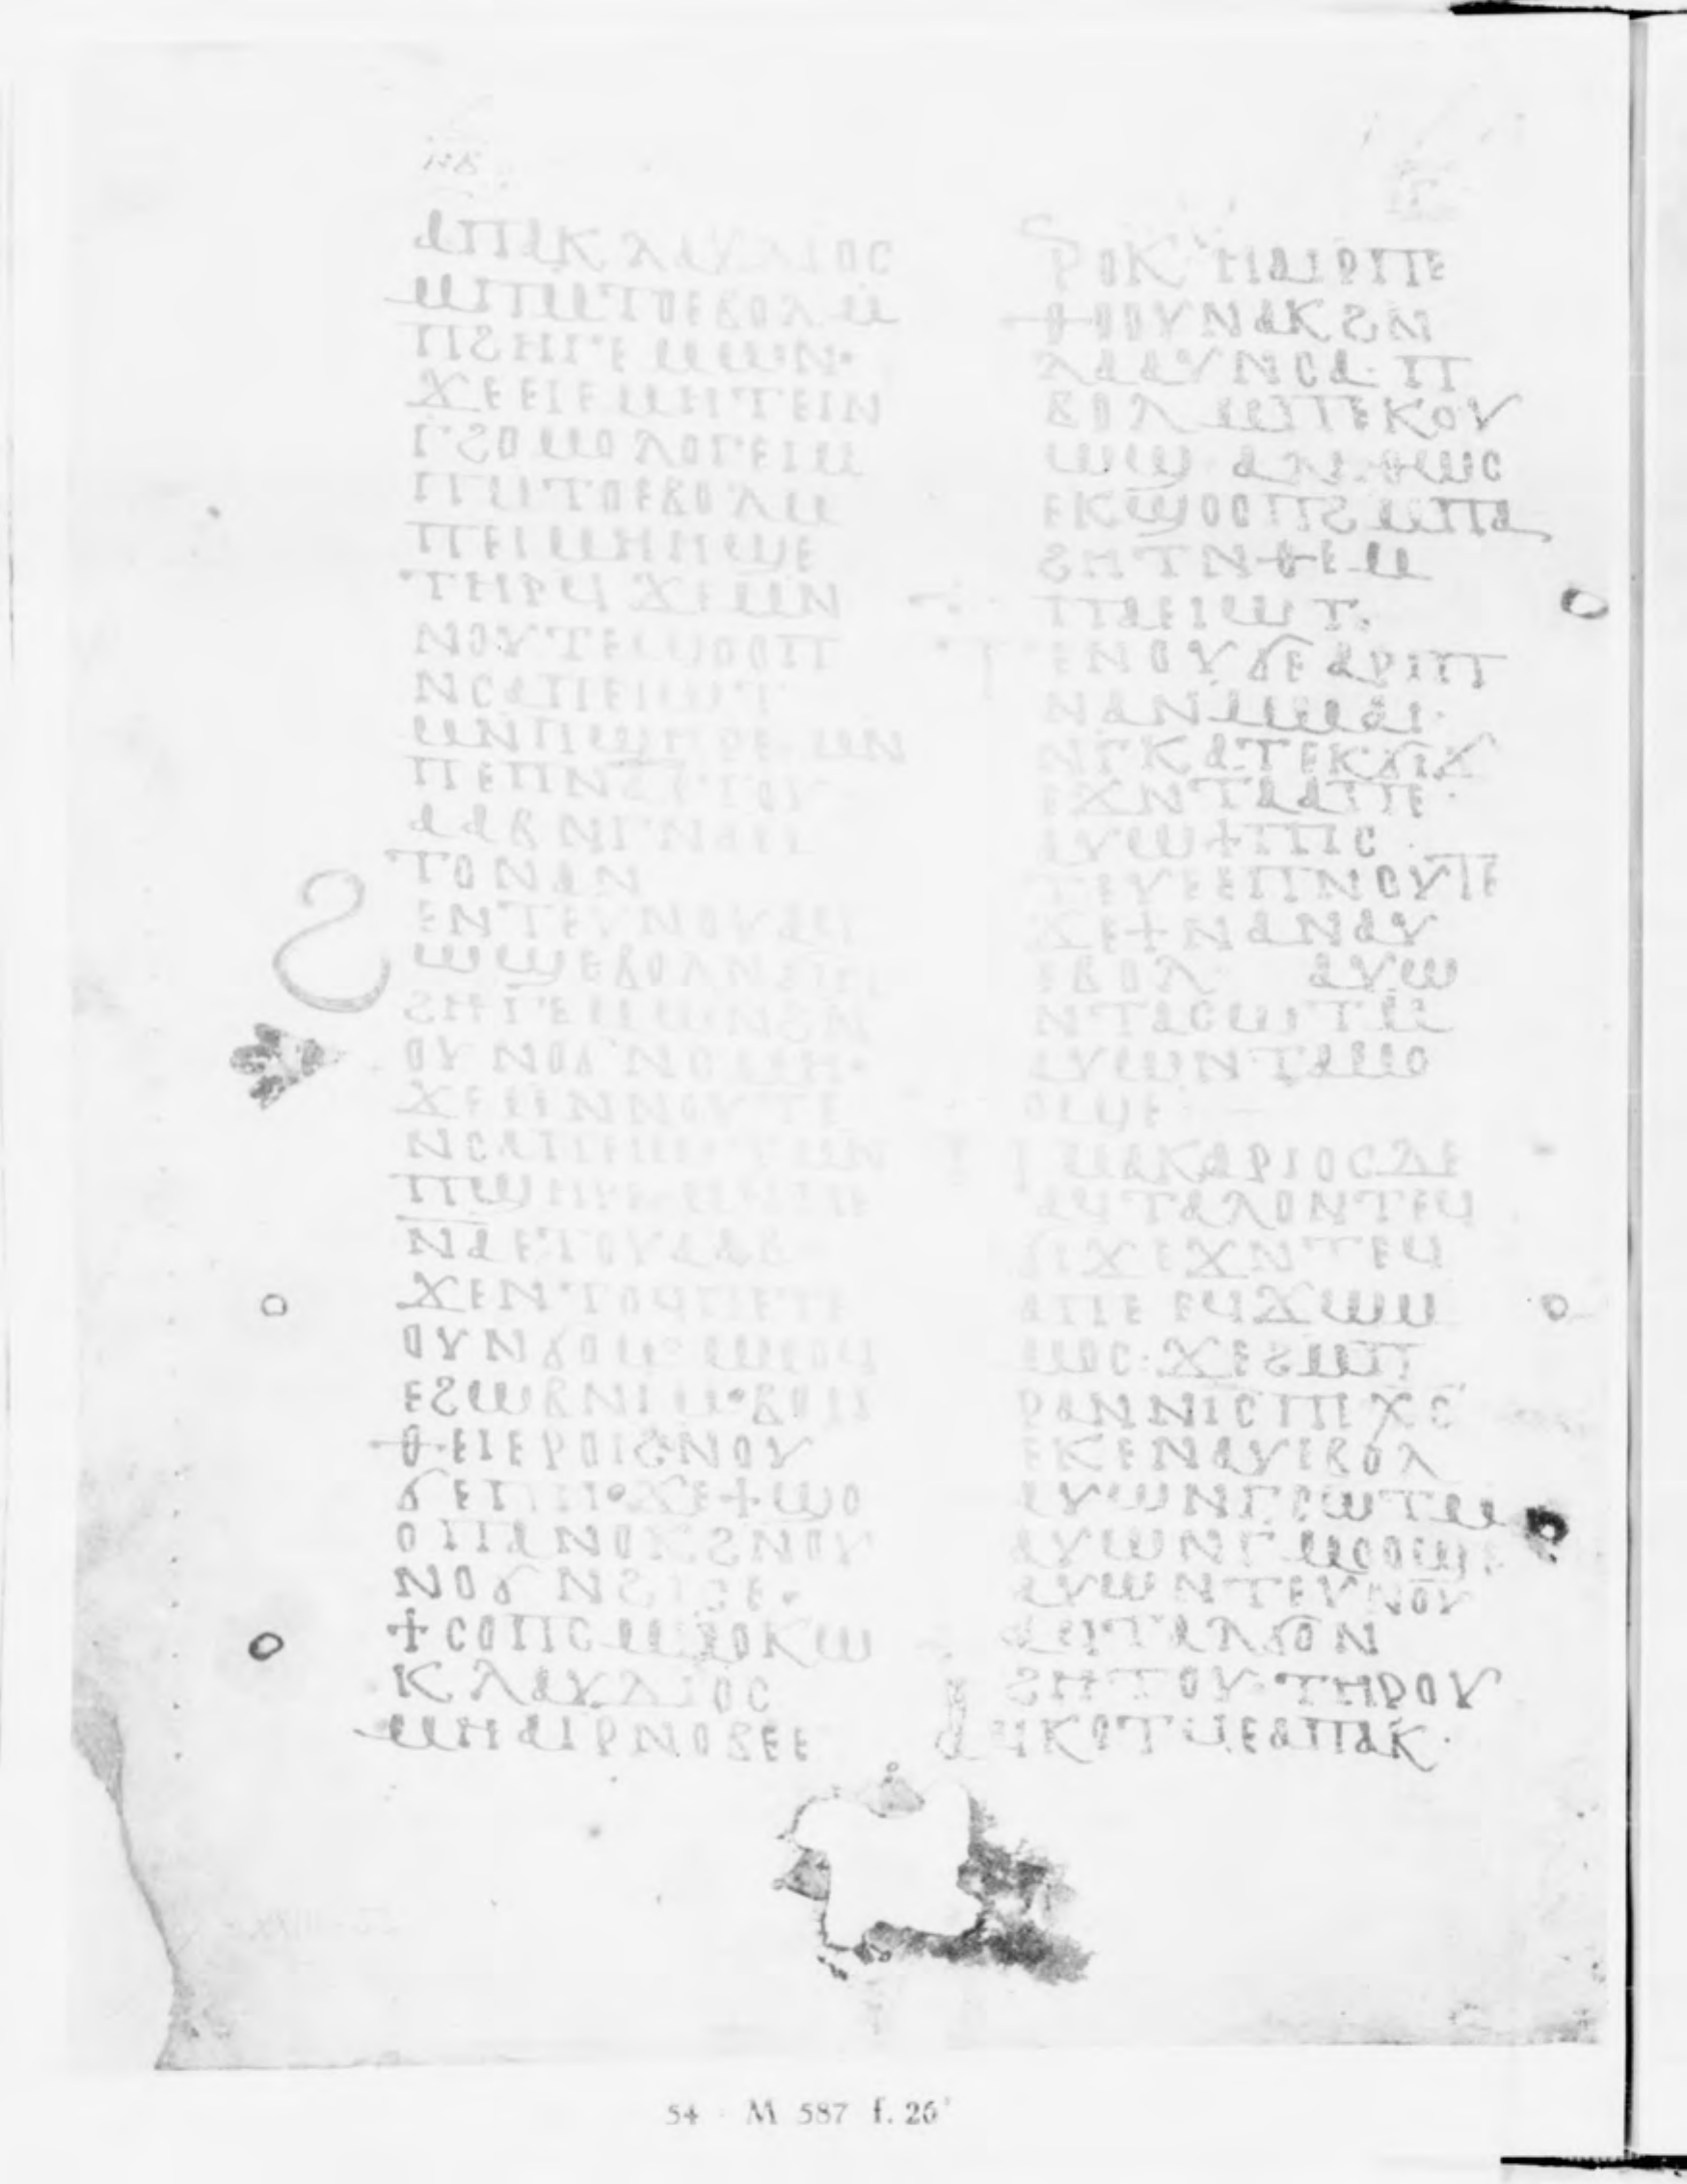 ⲁⲡⲁⲕⲗⲁⲩⲇⲓⲟⲥ
ⲙⲡⲙⲧⲟⲉⲃⲟⲗⲙ
ⲡϩⲏⲅⲉⲙⲱⲛ·
ϫⲉⲉⲓⲉⲙⲏⲧⲉⲓⲛ
ⲅϩⲟⲙⲟⲗⲟⲅⲉⲓⲙ
ⲡⲙⲧⲟⲉⲃⲟⲗⲙ
ⲡⲉⲓⲙⲏⲏϣⲉ
ⲧⲏⲣϥ ϫⲉⲙⲛ
ⲛⲟⲩⲧⲉϣⲟⲟⲡ
ⲛⲥⲁⲡⲉⲓⲱⲧ
ⲙⲛⲡϣⲏⲣⲉ ⲙⲛ
ⲡⲉⲡⲛⲁ ⲉⲧⲟⲩ
ⲁⲁⲃ
ⲧⲟⲛⲁⲛ
ⲛⲧⲉⲩⲛⲟⲩⲁϥ
ⲱϣⲉⲃⲟⲗ
ϩⲏⲅⲉⲙⲱⲛϩⲛ
ⲟⲩⲛⲟϭⲛⲥⲙⲏ·
ϫⲉⲙⲛⲛⲟⲩⲧⲉ
ⲛⲥⲁⲡⲉⲓⲱⲧⲙⲛ
ⲡϣⲏⲣⲉ ⲙⲛⲡⲉ
ⲡⲛⲁⲉⲧⲟⲩⲁⲁⲃ
ϫⲉⲛⲧⲟϥⲡⲉⲧⲉ
ⲟⲩⲛϭⲟⲙ ⲙⲙⲟϥ
ⲉϩⲱⲃⲛⲓⲙ·ⲃⲟⲏ
ⲑⲉⲓⲉⲣⲟⲓϩⲛⲟⲩ
ϭⲉⲡⲏ·ϫⲉϯϣⲟ
ⲟⲡⲁⲛⲟⲕϩⲛⲟⲩ
ⲛⲟϭ ⲛϩⲓⲥⲉ·
ϯⲥⲟⲡⲥ ⲙⲙⲟⲕⲱ
ⲕⲗⲁⲩⲇⲓⲟⲥ
ⲙⲏⲁⲓⲣⲛⲟⲃⲉⲉ
ⲣⲟⲕ ⲏⲁⲓⲣⲡⲉ
ⲑⲟⲟⲩⲛⲁⲕϩⲛ
ⲗⲁⲁⲩⲛⲥⲁⲡ
ⲃⲟⲗ ⲙⲡⲉⲕⲟⲩ
ⲱϣ ⲁⲛ ⲑⲱⲥ
ⲉⲕϣⲟⲟⲡϩⲙⲡⲁ
ϩⲏⲧⲛⲑⲉⲙ
ⲡⲁⲉⲓⲱⲧ.
ⲧⲉⲛⲟⲩϭⲉⲁⲣⲓⲡ
ⲛⲁⲛⲙⲙⲁⲓ·
ⲛⲅⲕⲁⲧⲉⲕϭⲓϫ
ⲉϫⲛⲧⲁⲁⲡⲉ·
ⲁⲩⲱϯⲡⲓⲥ
ⲧⲉⲩⲉⲉⲡⲛⲟⲩⲧⲉ
ϫⲉϯⲛⲁⲛⲁⲩ
ⲉⲃⲟⲗ ⲁⲩⲱ
ⲛⲧⲁⲥⲱⲧⲙ
ⲁⲩⲱⲛⲧⲁⲙⲟ
ⲟϣⲉ
ⲡⲙⲁⲕⲁⲣⲓⲟⲥⲇⲉ
ⲁϥⲧⲁⲗⲟⲛⲧⲉϥ
ϭⲓϫⲉϫⲛⲧⲉϥ
ⲁⲡⲉ ⲉϥϫⲱⲙ
ⲙⲟⲥ·ϫⲉϩⲙⲡ
ⲣⲁⲛⲛⲓⲥⲡⲉⲭⲥ
ⲉⲕⲉⲛⲁⲩⲉⲃⲟⲗ
ⲁⲩⲱⲛⲅⲥⲱⲧⲙ
ⲁⲩⲱⲛⲅⲙⲟⲟϣⲉ
ⲁⲩⲱⲛⲧⲉⲩⲛⲟⲩ
ⲁϥⲧⲁⲗϭⲟⲛ
ϩⲏⲧⲟⲩ ⲧⲏⲣⲟⲩ
ⲁϥⲕⲟⲧϥⲉⲁⲡⲁⲕ·
54 · M 587 f. 26ᵛ